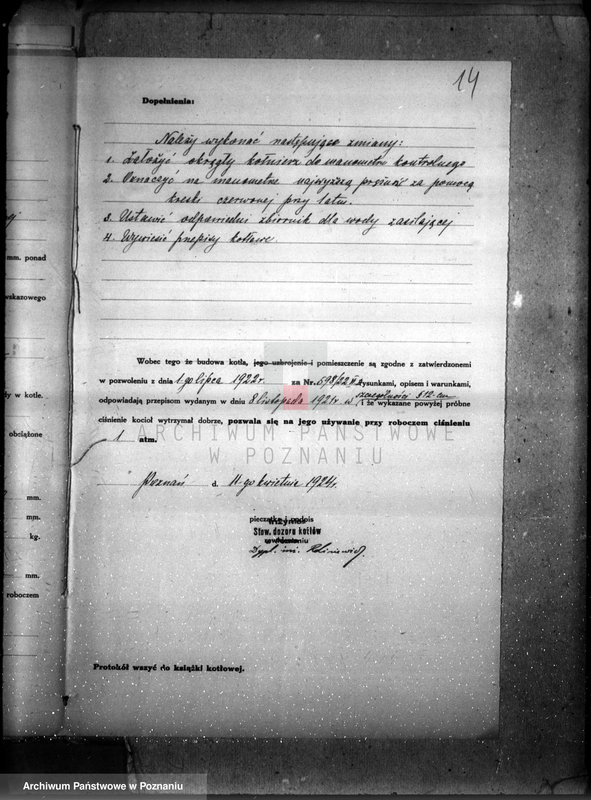 14
Dopełnienia:
Należy wykonać następujące zmiany:
1. Założyć okrągły kołnierz do manometru kontrolnego
2. Oznaczyć na manometrze najwyższą prężność za pomocą
kreski czerwonej przy 1 atm.
3. Ustawić odpowiedni zbiornik dla wody zasilającej
4. Wywiesić przepisy kotłowe.
mm. ponad
wskazowego
dy w kotle.
obciążone
mm.
mm.
kg.
mm.
roboczem
Wobec tego że budowa kotła, jego uzbrojenie i pomieszczenie są zgodne z zatwierdzonemi
w pozwoleniu z dnia 1 go lipca 1922 r. za Nr. 598/22 rysunkami, opisem i warunkami,
odpowiadają przepisom wydanym w dniu 8 listopada 1921 r. w szczególności § 12 i że wykazane powyżej próbne
ciśnienie kocioł wytrzymał dobrze, pozwala się na jego używanie przy roboczem ciśnieniu
1 atm.
ARCHIWUM PAŃSTWOWE
W POZNANIU
Poznań d. 11-go kwietnia 1924 r.
pieczątka i podpis
Inżynier
Stow. dozoru kotłów
w Poznaniu
Dypl. inż.
Protokół wszyć do książki kotłowej.
Archiwum Państwowe w Poznaniu